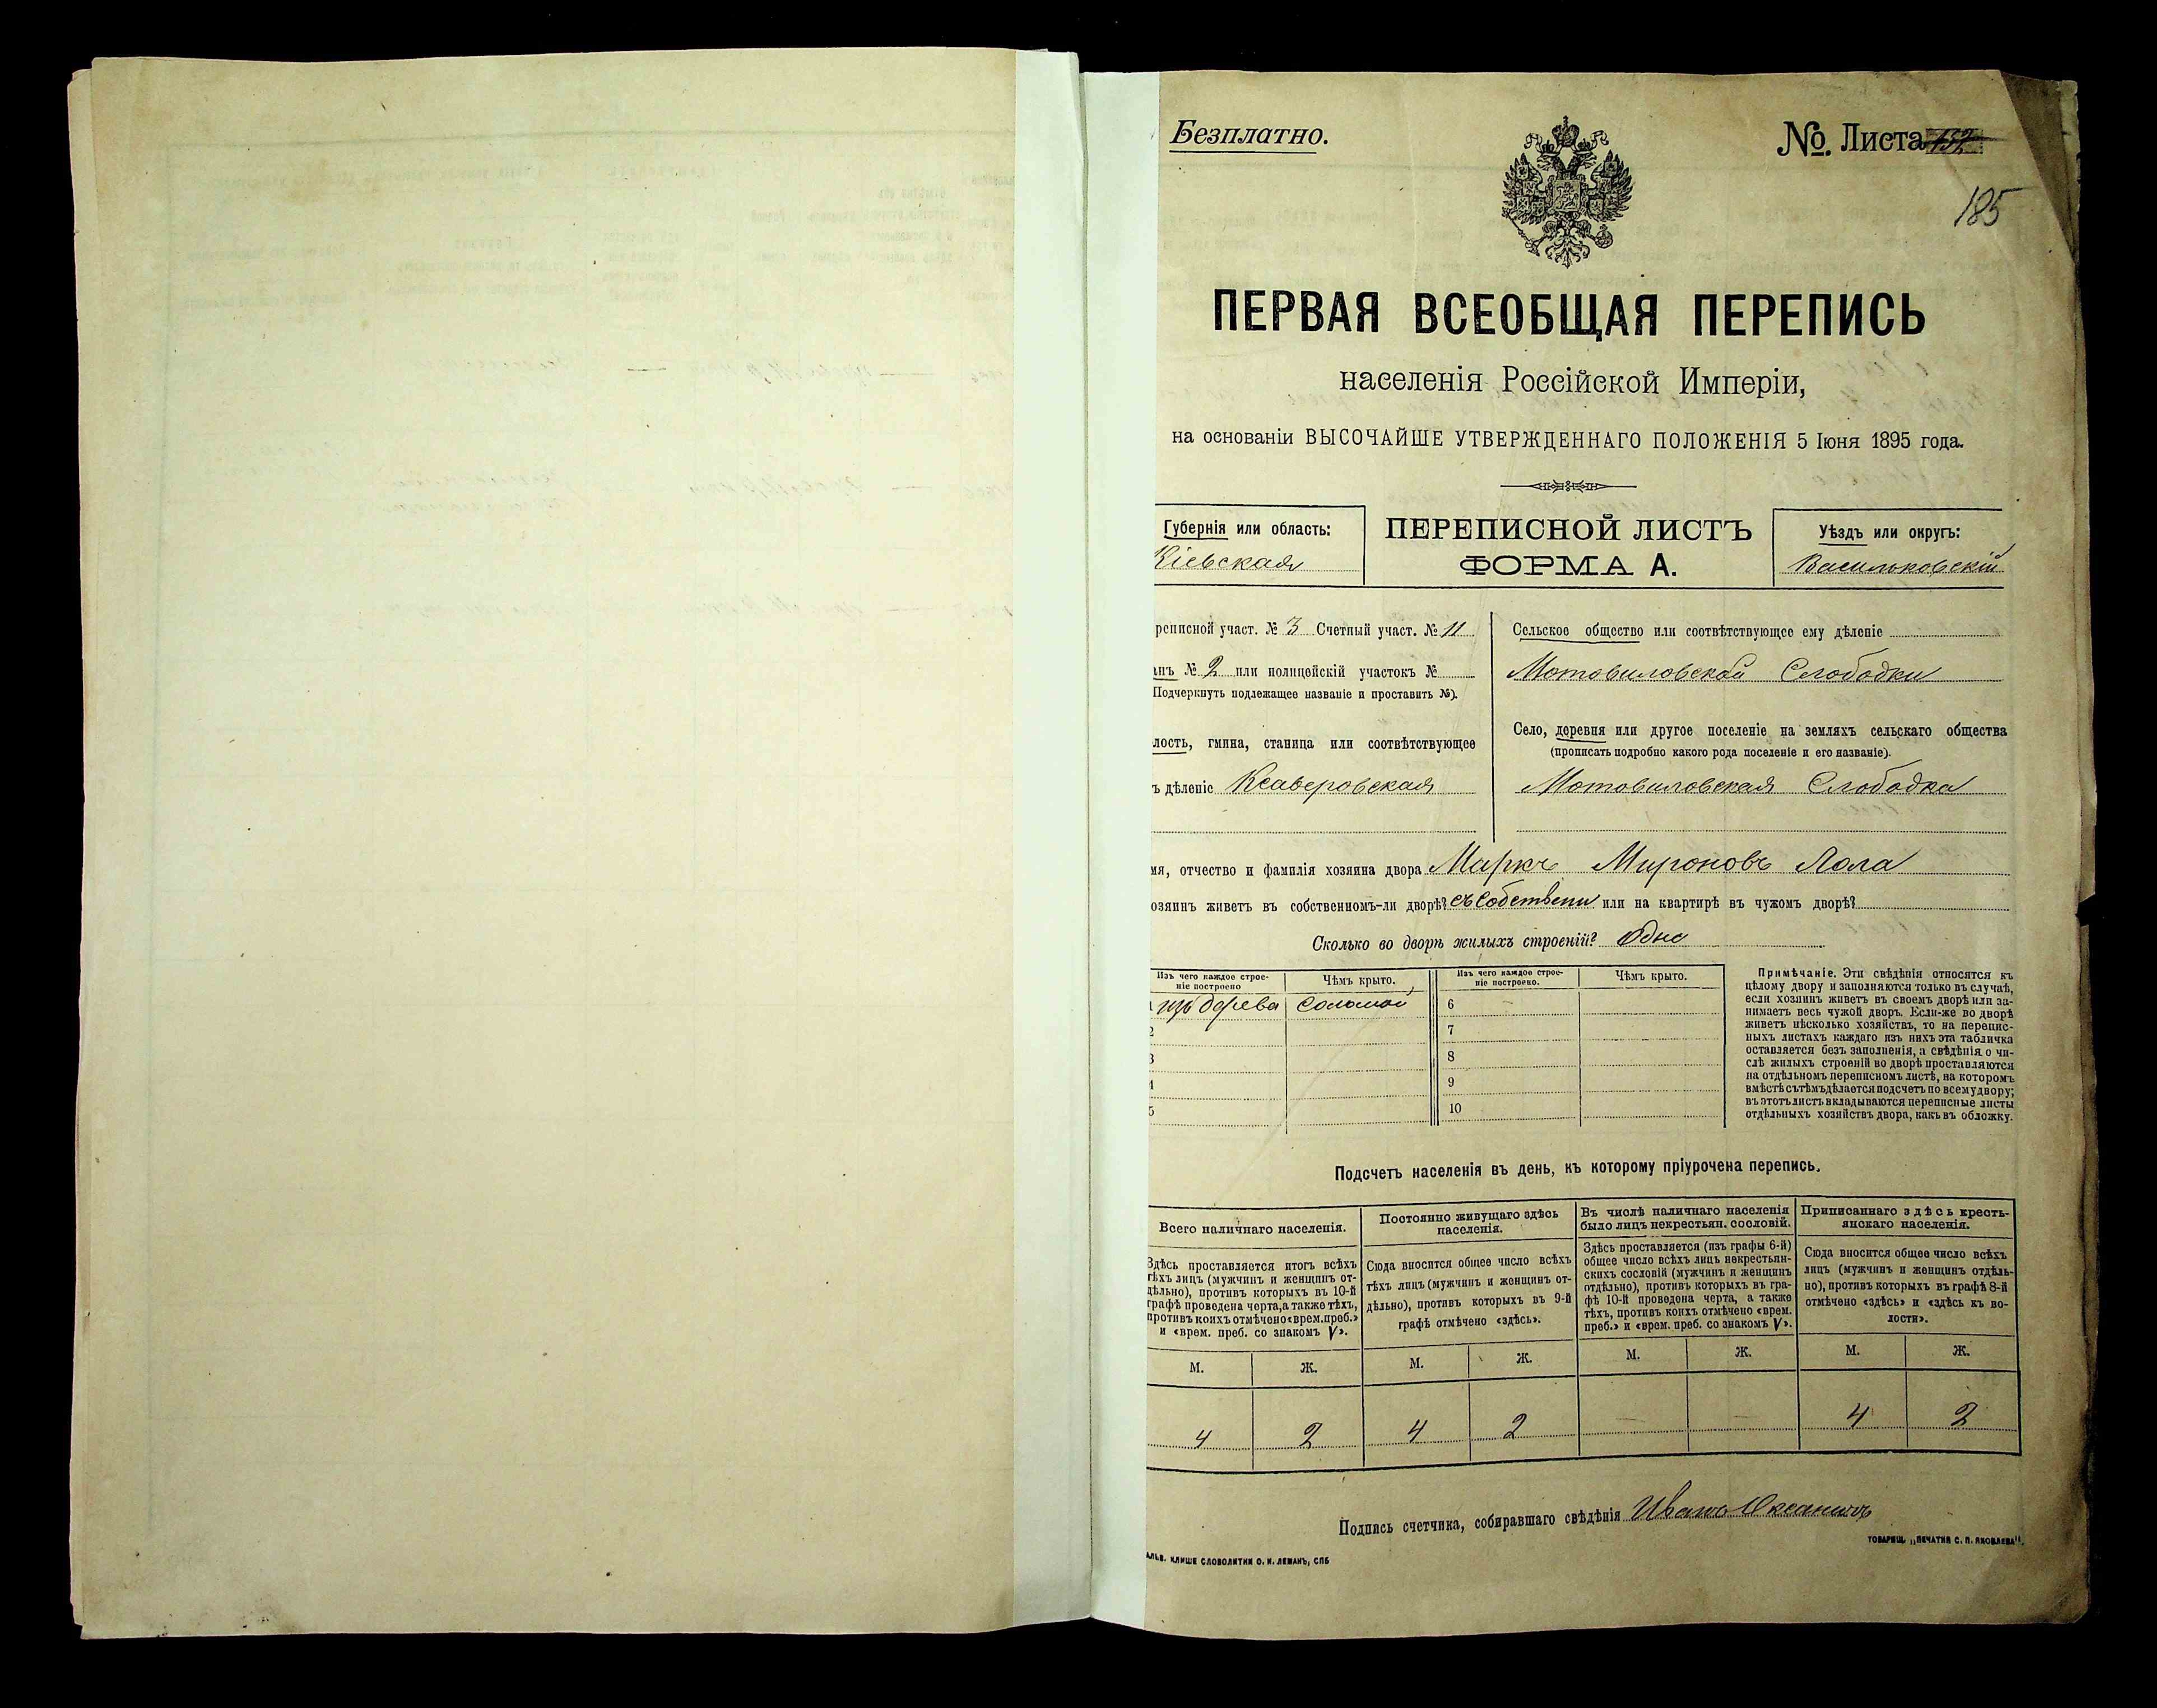 Безплатно.
№ Листа 152
185
ПЕРВАЯ ВСЕОБЩАЯ ПЕРЕПИСЬ
населенія Россійской Имперіи,
на основаніи ВЫСОЧАЙШЕ УТВЕРЖДЕННАГО ПОЛОЖЕНІЯ 5 Іюня 1895 года.
Губернія или область:
Кіевская
ПЕРЕПИСНОЙ ЛИСТЪ
ФОРМА А.
Уѣздъ или округъ:
Васильковскій
реписной участ. № 3 Счетный участ. № 11
анъ № 2 или полицейскій участокъ №
Подчеркнуть подлежащее названіе и проставить №).
лость, гмина, станица или соотвѣтствующее
ъ дѣленіе Ксаверовская
Сельское общество или соотвѣтствующее ему дѣленіе
Мотовиловской Слободки
Село, деревня или другое поселеніе на земляхъ сельскаго общества
(прописать подробно какого рода поселеніе и его названіе).
Мотовиловская Слободка
мя, отчество и фамилія хозяина двора Маркъ Мироновъ Лола
озяинъ живетъ въ собственномъ-ли дворѣ? въ собствен или на квартирѣ въ чужомъ дворѣ?
Сколько во дворѣ жилыхъ строеній? Одно
Изъ чего каждое строе-
ніе построено
Чѣмъ крыто.
Изъ чего каждое строе-
ніе построено.
Чѣмъ крыто.
1 изъ дерева Соломой 6
2 7
3 8
4 9
5 10
Примѣчаніе. Эти свѣдѣнія относятся къ
цѣлому двору и заполняются только въ случаѣ,
если хозяинъ живетъ въ своемъ дворѣ или за-
нимаетъ весь чужой дворъ. Если-же во дворѣ
живетъ нѣсколько хозяйствъ, то на перепис-
ныхъ листахъ каждаго изъ нихъ эта табличка
оставляется безъ заполненія, а свѣдѣнія о чи-
слѣ жилыхъ строеній во дворѣ проставляются
на отдѣльномъ переписномъ листѣ, на которомъ
вмѣстѣ съ тѣмъ дѣлается подсчетъ по всему двору;
въ этотъ листъ вкладываются переписные листы
отдѣльныхъ хозяйствъ двора, какъ въ обложку.
Подсчетъ населенія въ день, къ которому пріурочена перепись.
Всего наличнаго населенія.
Здѣсь проставляется итогъ всѣхъ
тѣхъ лицъ (мужчинъ и женщинъ от-
дѣльно), противъ которыхъ въ 10-й
графѣ проведена черта, а также тѣхъ,
противъ коихъ отмѣчено «врем. преб.»
и «врем. преб. со знакомъ V».
Постоянно живущаго здѣсь
населенія.
Сюда вносится общее число всѣхъ
тѣхъ лицъ (мужчинъ и женщинъ от-
дѣльно), противъ которыхъ въ 9-й
графѣ отмѣчено «здѣсь».
Въ числѣ наличнаго населенія
было лицъ некрестьян. сословій.
Здѣсь проставляется (изъ графы 6-й)
общее число всѣхъ лицъ некрестьян-
скихъ сословій (мужчинъ и женщинъ
отдѣльно), противъ которыхъ въ гра-
фѣ 10-й проведена черта, а также
тѣхъ, противъ коихъ отмѣчено «врем.
преб.» и «врем. преб. со знакомъ V».
Приписаннаго здѣсь кресть-
янскаго населенія.
Сюда вносится общее число всѣхъ
лицъ (мужчинъ и женщинъ отдѣль-
но), противъ которыхъ въ графѣ 8-й
отмѣчено «здѣсь» и «здѣсь къ во-
лости».
М. Ж. М. Ж. М. Ж. М. Ж.
4 2 4 2 — — 4 2
Подпись счетчика, собиравшаго свѣдѣнія Иванъ
АЛЬВ. КЛИШЕ СЛОВОЛИТНИ О. И. ЛЕМАНЪ, СПБ
ТОВАРИЩ. „ПЕЧАТНЯ С. П. ЯКОВЛЕВА“.